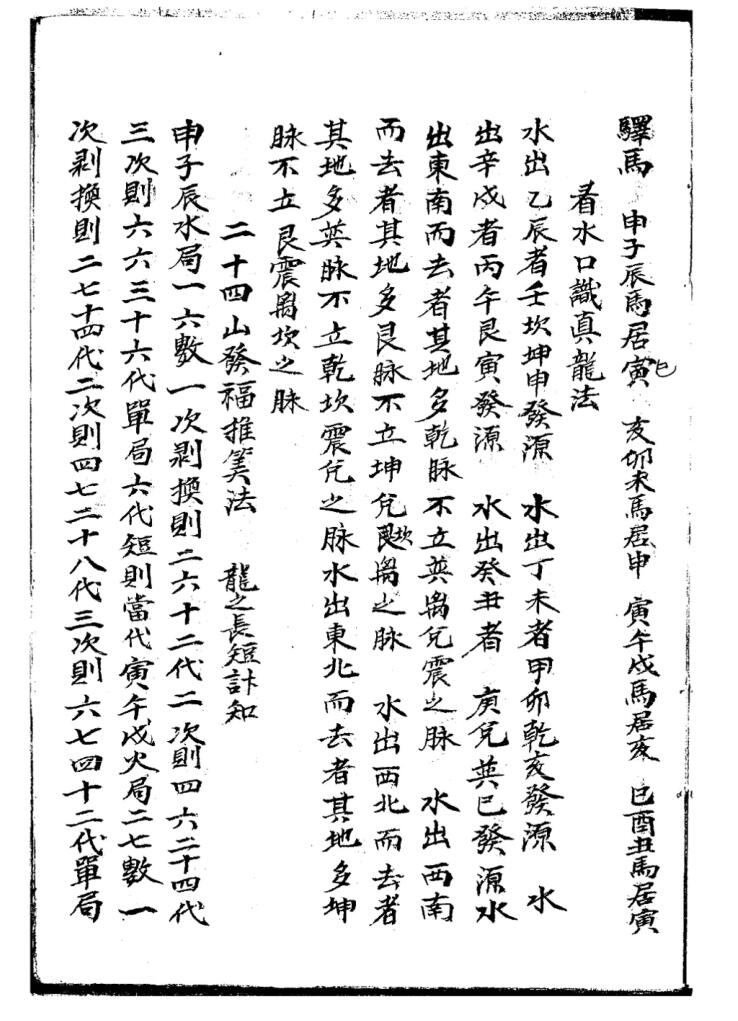 驛馬 申子辰馬居寅巳 亥卯未馬居申 寅午戌馬居亥 巳酉丑馬居寅
看水口識真龍法
水出乙辰者壬坎坤申發源 水出丁未者甲卯乾亥發源 水
出辛戌者丙午艮寅發源 水出癸丑者 庚兌巽巳發源水
出東南而去者其地多乾脉不立巽离兌震之脉 水出西南
而去者其地多艮脉不立坤兌艮坎离之脉 水出西北而去者
其地多巽脉不立乾坎震兌之脉水出東北而去者其地多坤
脉不立艮震离坎之脉
二十四山發福推筭法 龍之長短計知
申子辰水局一六數一次剥換則二六十二代二次則四六二十四代
三次則六六三十六代單局六代短則當代寅午戌火局二七數一
次剥換則二七十四代二次則四七二十八代三次則六七四十二代單局